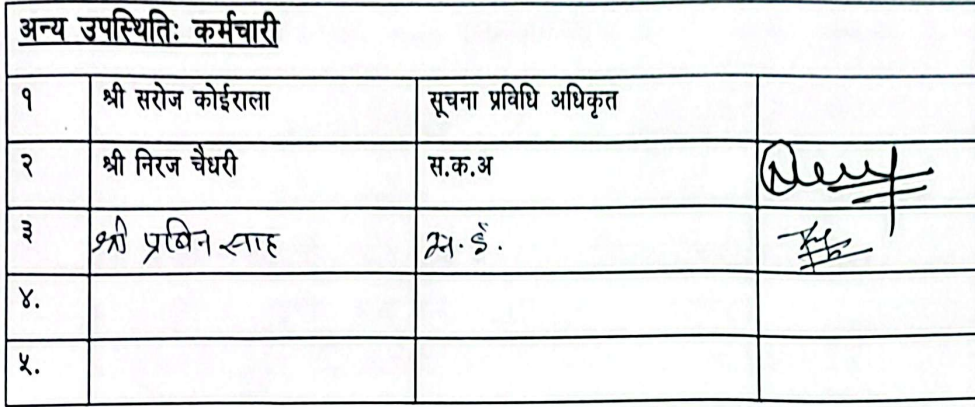 अन्य उपस्थितिः कर्मचारी
१ श्री सरोज कोईराला सूचना प्रविधि अधिकृत
२ श्री निरज चैधरी स.क.अ
३ श्री प्रबिन साह स.ई.
४.
५.